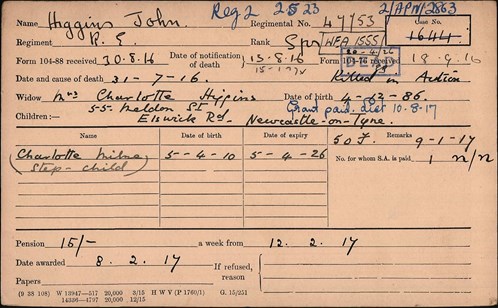 Reg 2 2523 2/APW/2863
Name Higgins John. Regimental No. 47753 Case No.
Regiment R. E. Rank Spr WEA 15551 16441
Form 104-88 received 30.8.16 Date of notification of death 15.8.16 Form 104-76 received 18.9.16
20-4-26
Date and cause of death 31-7-16. Killed in Action
Widow Mrs Charlotte Higgins Date of birth 4-12-86.
55 Meldon St Grant paid. died 10-8-17
Children: Elswick Rd Newcastle-on-Tyne.
Name Date of birth Date of expiry 50 F. Remarks 9-1-17
(Charlotte Milne 5-4-10 5-4-26 No. for whom S.A. is paid 1 n/n
Step-child)
Pension 15/- a week from 12.2.17
Date awarded 8.2.17 If refused, reason
Papers
(9 28 108) W 13947—517 20,000 3/15 H W V (P 1760/1) G. 15/251
14336—4707 20,000 12/15